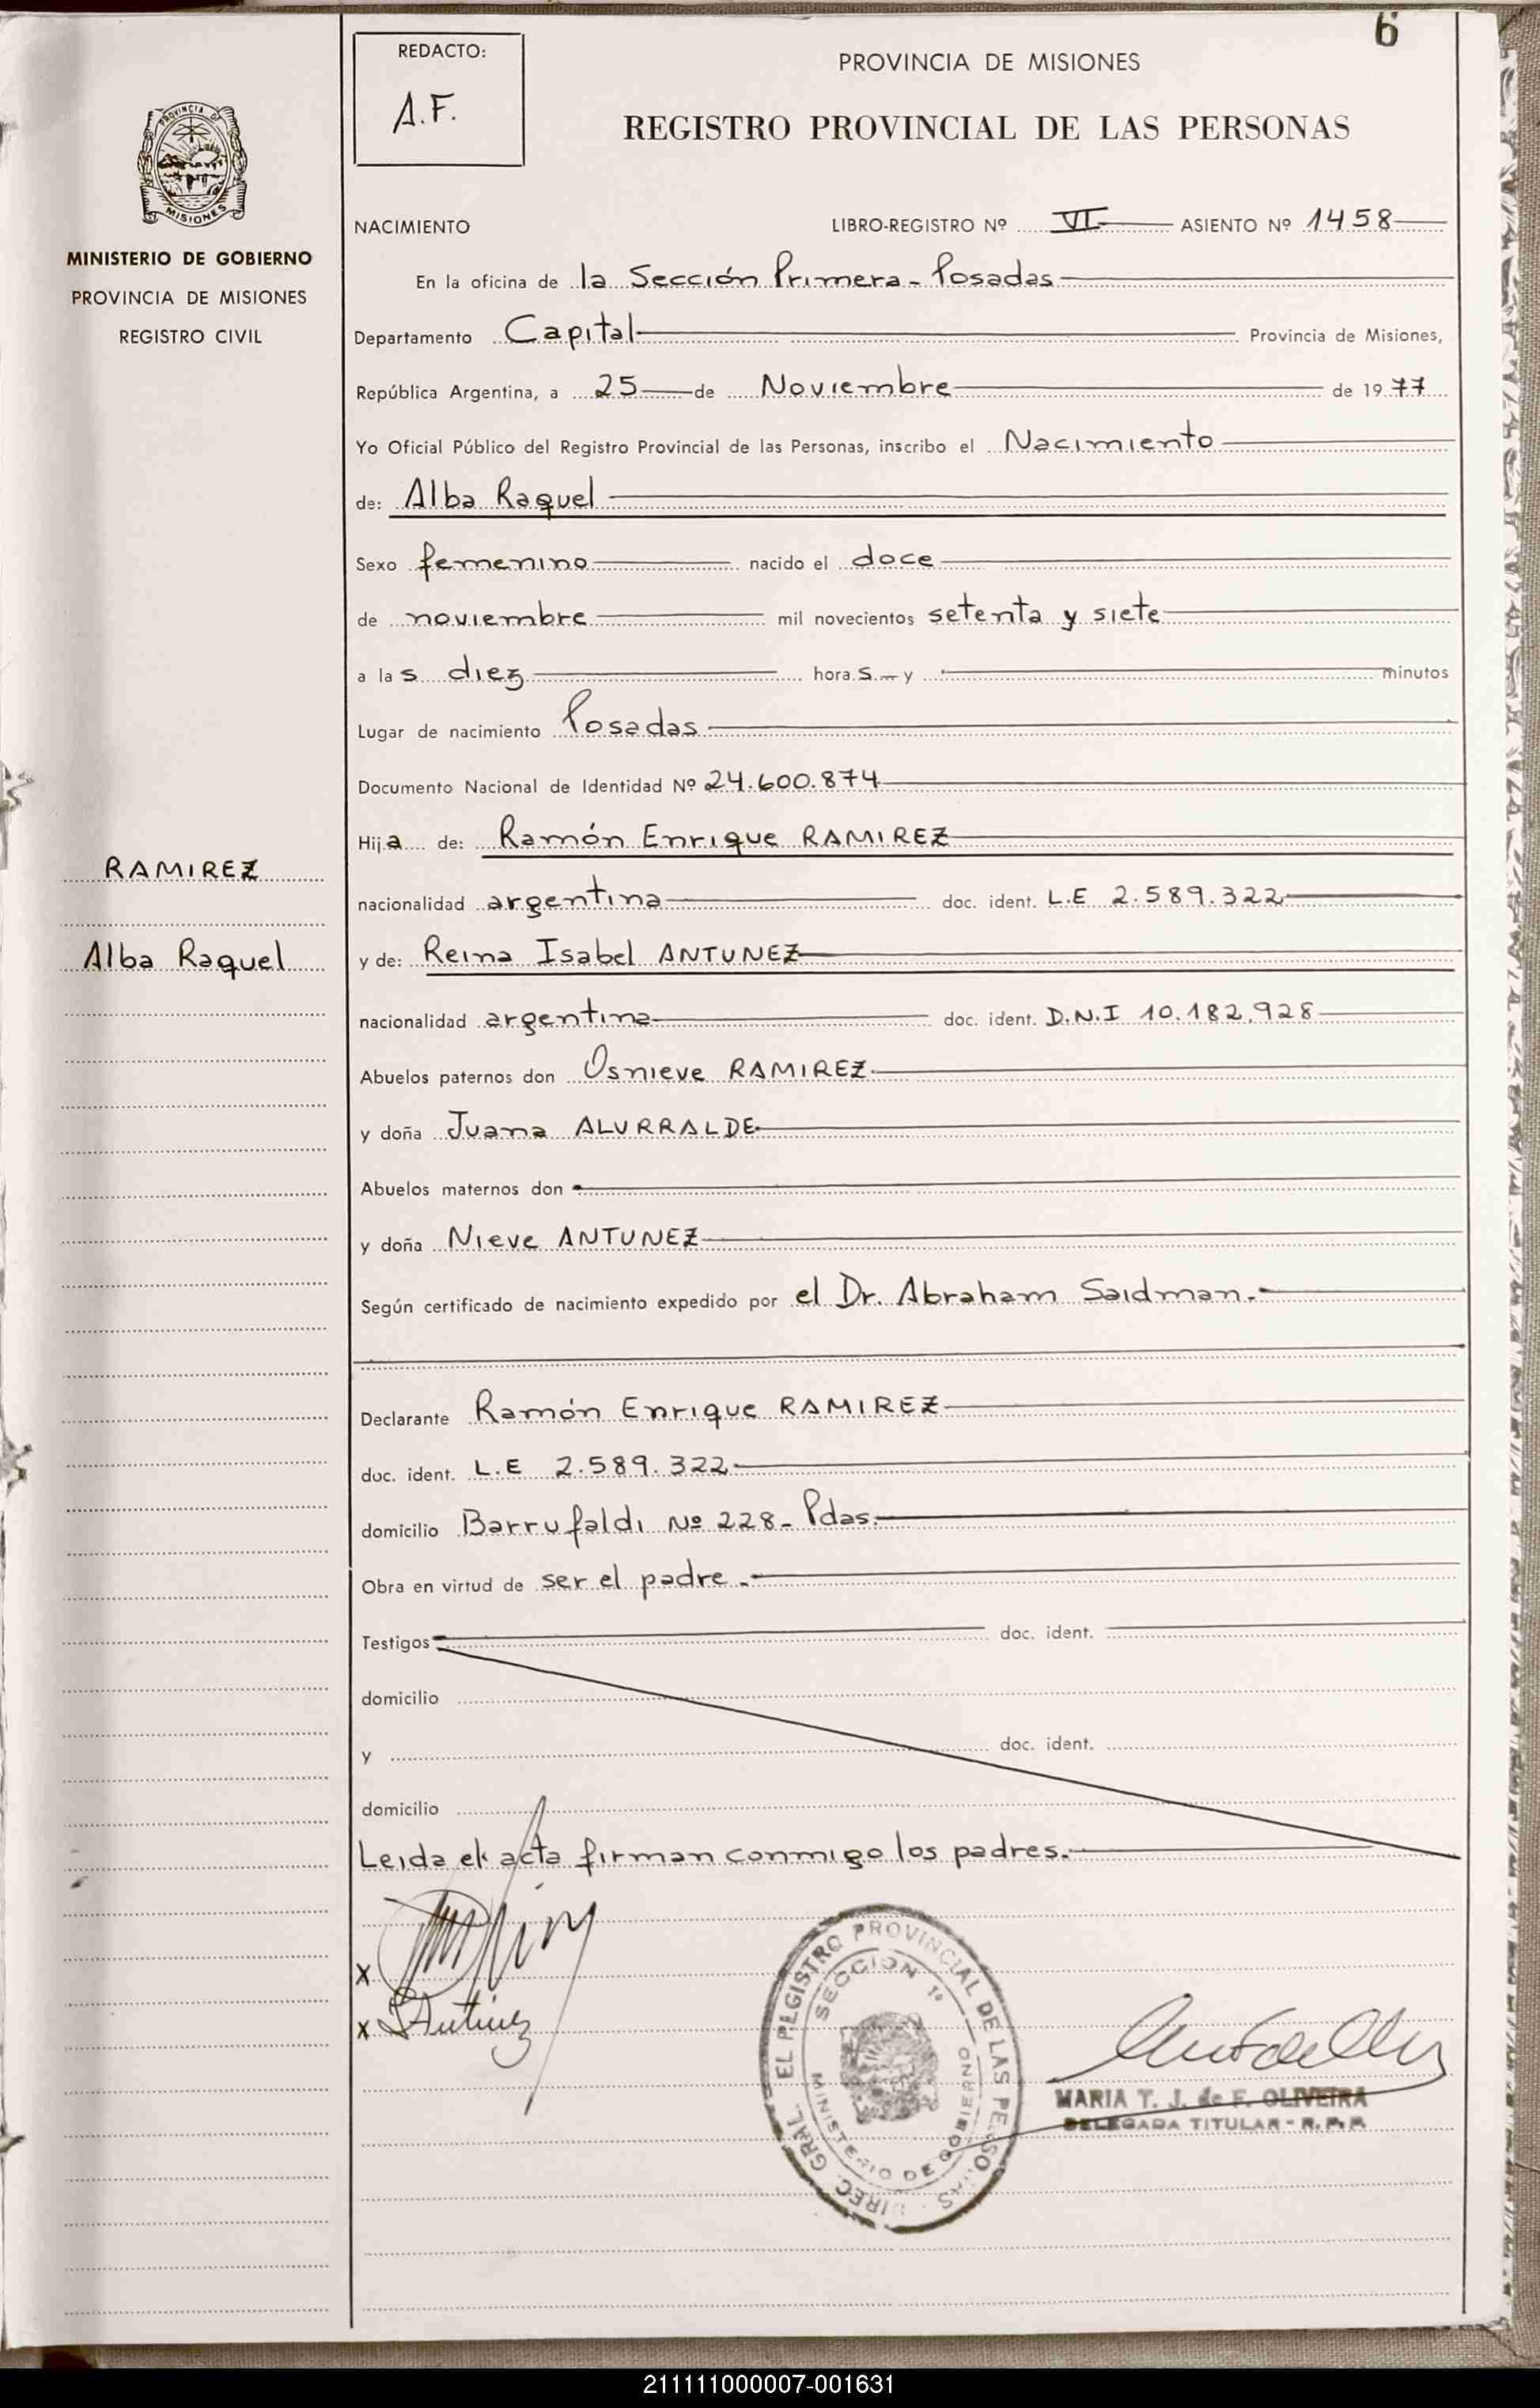 6
REDACTO:
A.F.
PROVINCIA DE MISIONES
REGISTRO PROVINCIAL DE LAS PERSONAS
PROVINCIA DE
MISIONES
MINISTERIO DE GOBIERNO
PROVINCIA DE MISIONES
REGISTRO CIVIL
NACIMIENTO LIBRO-REGISTRO Nº VI ASIENTO Nº 1458
En la oficina de la Sección Primera - Posadas
Departamento Capital Provincia de Misiones,
República Argentina, a 25 de Noviembre de 1977
Yo Oficial Público del Registro Provincial de las Personas, inscribo el Nacimiento
de: Alba Raquel
Sexo femenino nacido el doce
de noviembre mil novecientos setenta y siete
a las diez horas y minutos
Lugar de nacimiento Posadas
Documento Nacional de Identidad Nº 24.600.874
Hija de: Ramón Enrique RAMIREZ
RAMIREZ
nacionalidad argentina doc. ident. L.E 2.589.322
Alba Raquel
y de: Reina Isabel ANTUNEZ
nacionalidad argentina doc. ident. D.N.I 10.182.928
Abuelos paternos don Osnieve RAMIREZ
y doña Juana ALURRALDE
Abuelos maternos don
y doña Nieve ANTUNEZ
Según certificado de nacimiento expedido por el Dr. Abraham Saidman.-
Declarante Ramón Enrique RAMIREZ
doc. ident. L.E 2.589.322
domicilio Barrufaldi Nº 228- Pdas.
Obra en virtud de ser el padre.-
Testigos doc. ident.
domicilio
y doc. ident.
domicilio
Leida el acta firman conmigo los padres.
X
X Antunez
DIREC. GRAL. EL REGISTRO PROVINCIAL DE LAS PERSONAS
SECCION 1º
MINISTERIO DE GOBIERNO
MARIA T. J. de F. OLIVEIRA
DELEGADA TITULAR - R.P.P.
211111000007-001631